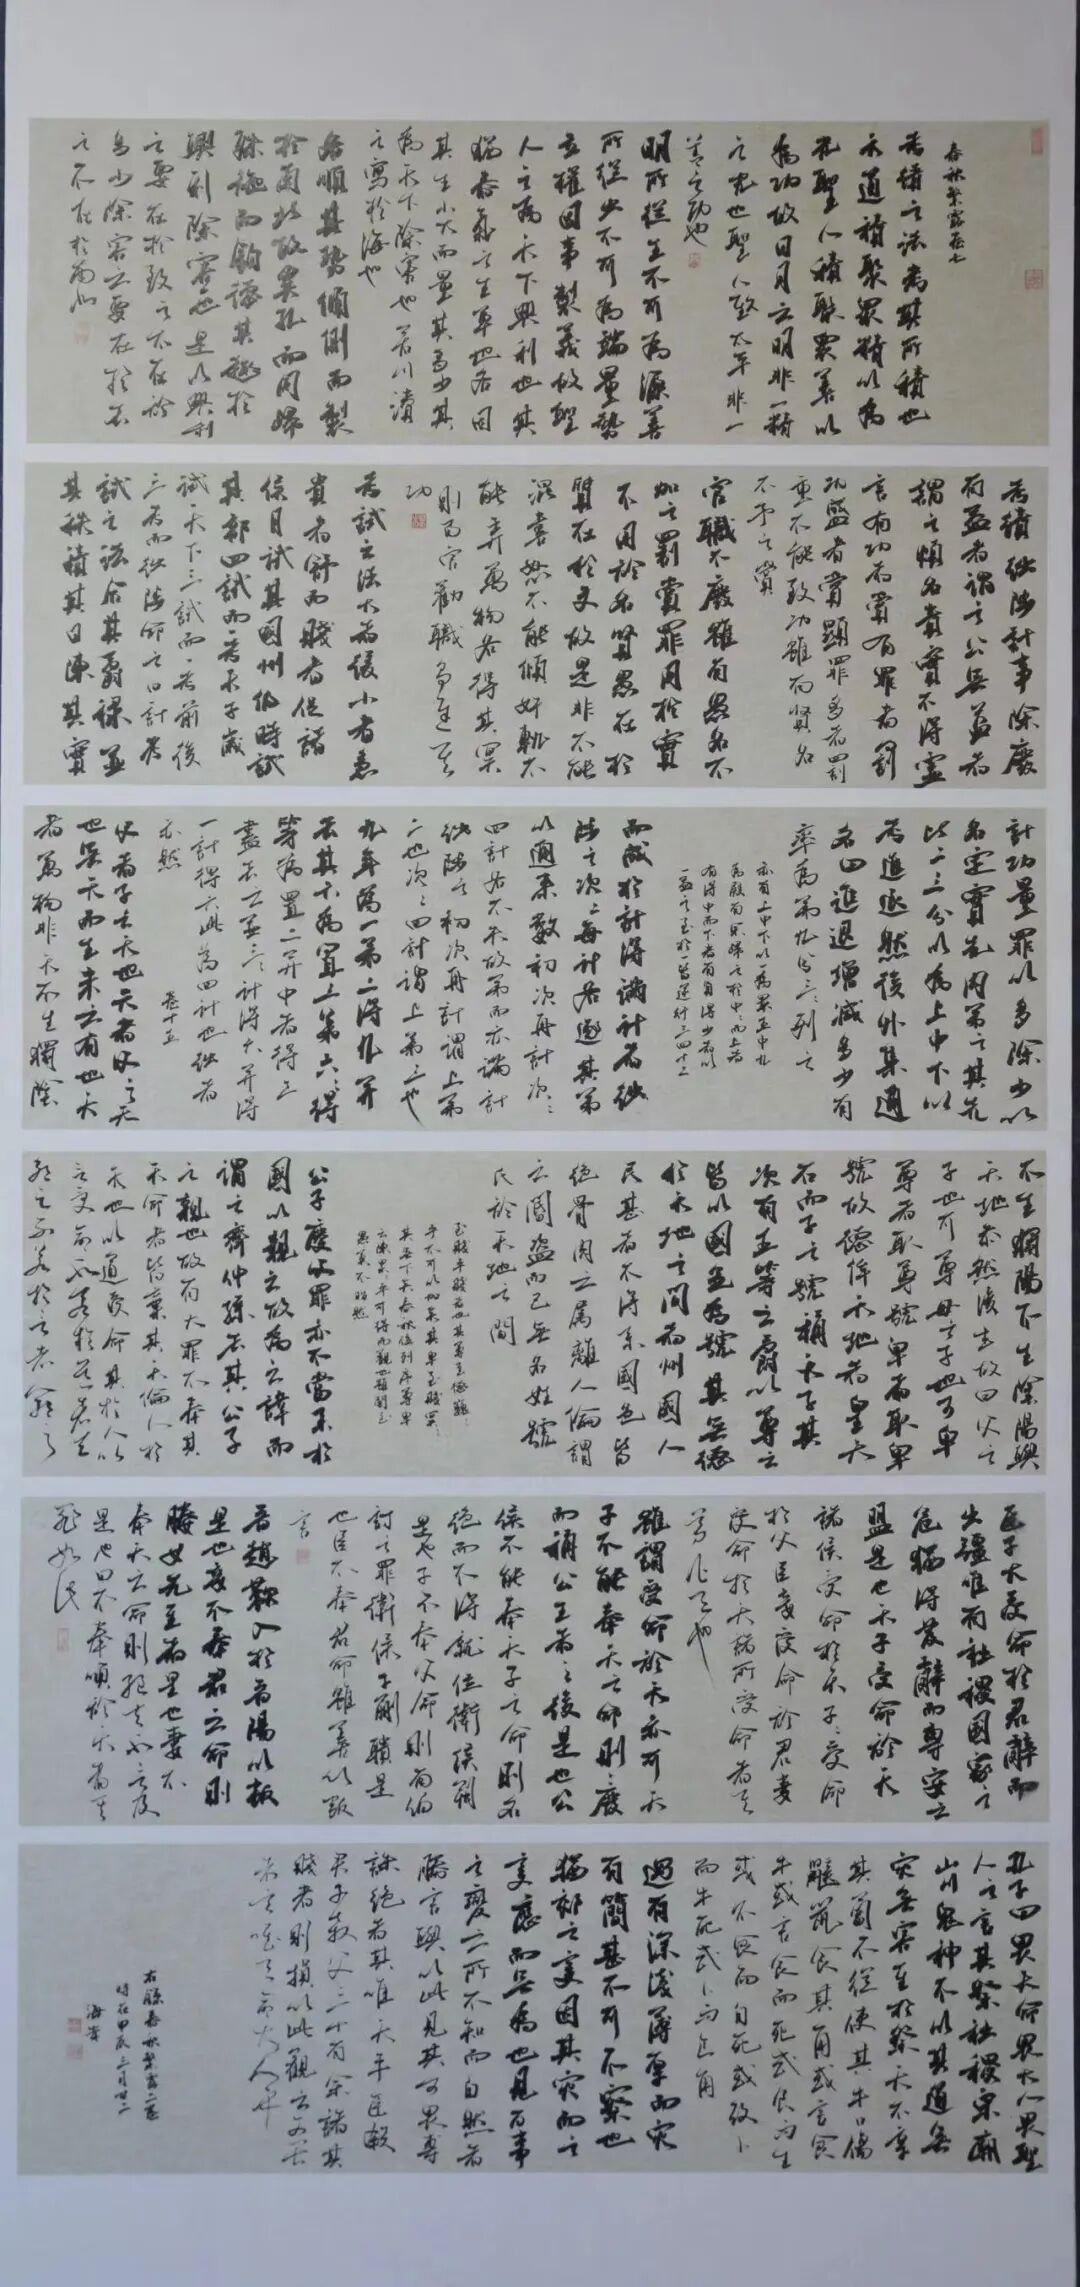 春秋繁露卷七
考績之法考其所積也
天道積聚眾精以為
光聖人積聚眾善以
為功故日月之明非一精
之光也聖人致太平非一
善之功也
明所從生不可為源善
所從出不可為端量勢
立權因事製義故聖
人之為天下興利也其
猶春氣之生草也各因
其生小大而量其多少其
為天下除害也若川瀆
之寫於海也
各順其勢傾側而製
於南北故異孔而同歸
殊施而鈞德其趣於
興利除害也是以興利
之要在於致之不在於
多少除害之要在於去
之不在於南北
考績絀陟計事除廢
有益者謂之公無益者
謂之煩名責實不得虛
言有功者賞有罪者罰
功盛者賞顯罪多者罰
重不能致功雖有賢名
不予之賞
官職不廢雖有愚名不
加之罰賞罪用於實
不用於名賢愚在於
質在於文故是非不能
混喜怒不能傾奸軌不
能弄萬物各得其冥
則百官勸職爭進其
功
考試之法大者緩小者急
貴者舒而賤者促諸
侯月試其國州伯時試
其部四試而一考天子歲
試天下三試而一考前後
三考而絀陟命之曰計考
試之法合其爵祿並
其秩積其日陳其實
計功量罪以多除少以
名定實先內第之其先
比二三分以為上中下以
考進退然後外集通
名曰進退增減多少有
率為第九分三三列之
亦有上中下以一為最五為中九
為殿有餘歸之於中中而上者
有得中而下者有負得少者以
一益之至於一皆逆行三四十二
而成於計得滿計者絀
陟之次次每計各逐其第
以通來數初次再計次次
四計各不失故第而亦滿計
絀陟之初次再計謂上第
二也次次四計謂上第三也
九年為一第二得九并
去其六為置上第六六得
等為置二并中者得三
盡去之并三三計得六并得
一計得六此為四計也絀者
亦然
卷十五
父者子之天也天者父之天
也無天而生未之有也天
者萬物非天不生獨陰
不生獨陽不生陰陽與
天地參然後生故曰父之
子也可尊母之子也可卑
尊者取尊號卑者取卑
號故德侔天地者皇天
右而子之號稱天子其
次有五等之爵以尊之
皆以國邑為號其無德
於天地之間者州國人
民甚者不得系國邑皆
絕骨肉之屬離人倫謂
之閽盜而已無名姓號
氏於天地之間
至賤乎賤者也其尊至德巍巍
乎不可以加矣其卑至賤冥冥
其無下矣春秋位列序尊卑
之陳累累乎可得而觀也雖闇至
愚莫不昭然
公子慶父罪亦不當系於
國以親之故為之諱而
謂之齊仲孫去其公子
之親也故有大罪不奉其
天命者皆棄其天倫人於
天也以道受命其於人以
言受命不若於道者天
絕之不若於言者人絕之
臣子大受命於君辭而
出疆唯有社稷國家之
危猶得發辭而專安之
盟是也天子受命於天
諸侯受命於天子子受命
於父臣妾受命於君妻
受命於夫諸所受命者其
尊皆天也
雖謂受命於天亦可天
子不能奉天之命則廢
而稱公王者之後是也公
侯不能奉天子之命則名
絕而不得就位衛侯朔
是也子不奉父命則有伯
討之罪衛侯子蒯聵是
也臣不奉君命雖善以叛
言
晉趙鞅入於晉陽以叛
是也妾不奉君之命則
媵女先至者是也妻不
奉夫之命則絕夫不言及
是也曰不奉順於天者其
罪如此
孔子曰畏天命畏大人畏聖
人之言其祭社稷宗廟
山川鬼神不以其道無
災無害至於祭天不享
其蔔不從使其牛口傷
鼷鼠食其角或言食
牛或言食而死或食而生
或不食而自死或改卜
而牛死或卜而食角
過有深淺薄厚而災
有簡甚不可不察也
猶郊之變因其災而之
變應而無為也見百事
之變之所不知而自然者
勝言與以此見其可畏專
誅絕者其唯天乎臣殺
君子殺父三十有餘諸其
賤者則損以此觀之可畏
者其唯天命大人乎
右錄春秋繁露二卷
時在甲辰三月廿二